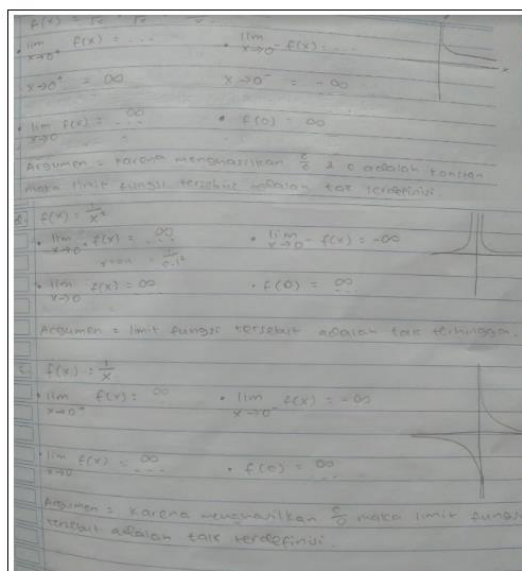 f(x) =
• lim x→0⁺ f(x) = ... • lim x→0⁻ f(x) ...
x→0⁺ = ∞ x→0⁻ = -∞
• lim x→0 f(x) = ∞ • f(0) = ∞
Argumen = karena menghasilkan c/0 & c adalah konstan
maka limit fungsi tersebut adalah tak terdefinisi.
b. f(x) = 1/x²
• lim x→0⁺ f(x) = ∞ • lim x→0⁻ f(x) = -∞
• lim x→0 f(x) = ∞ • f(0) = ∞
Argumen = limit fungsi tersebut adalah tak terhingga.
c. f(x) = 1/x
• lim x→0⁺ f(x) = ∞ • lim x→0⁻ f(x) = -∞
• lim x→0 f(x) = ∞ • f(0) = ∞
Argumen = karena menghasilkan c/0 maka limit fungsi
tersebut adalah tak terdefinisi.